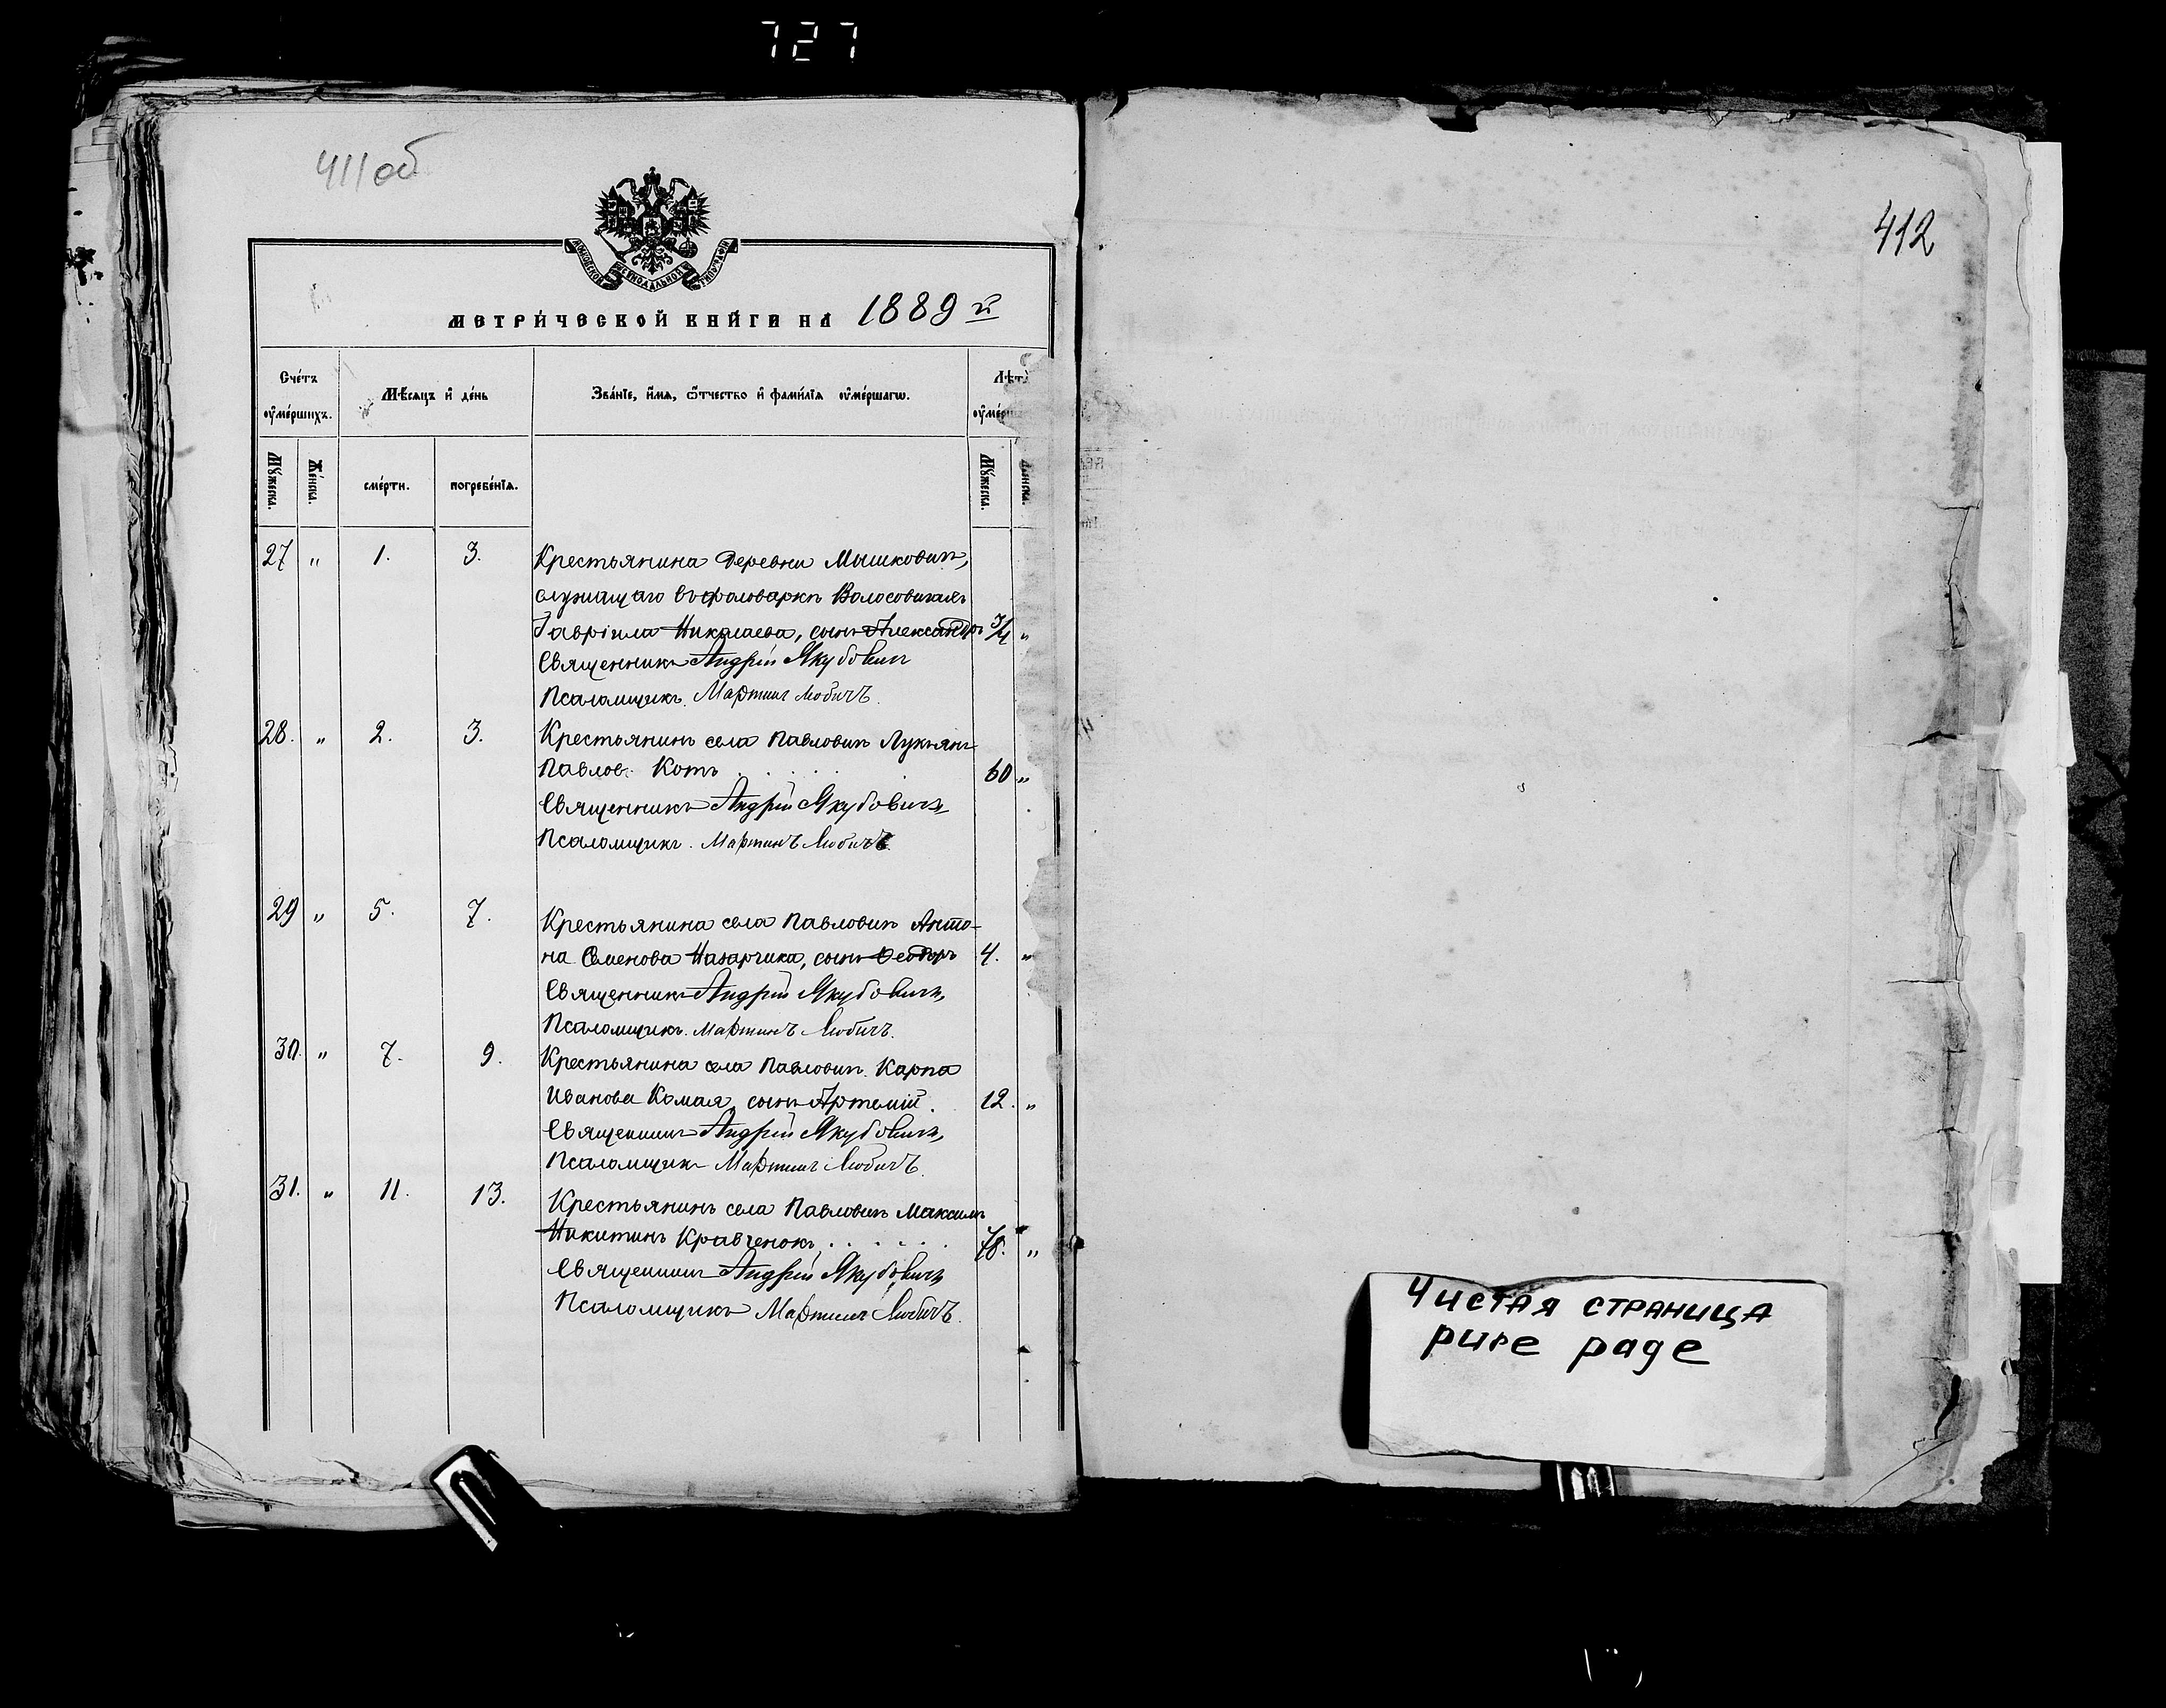 727
411об
МОСКОВСКОЙ СѴНОДАЛЬНОЙ ТИПОГРАФІИ
МЕТРИ́ЧЕСКОЙ КНИ́ГИ НА 1889й
Сче́тъ ᲂу҆ме́ршихъ.
Мѣ́сяцъ и҆ де́нь
Зва́нїе, и҆́мя, ѻ҆́тчество и҆ фами́лїя ᲂу҆ме́ршагѡ.
Лѣта̀
Мꙋ́жеска. Же́нска. сме́рти. погребе́нїя. Мꙋ́жеска. Же́нска.
27 " 1. 3. Крестьянина деревни Мышковичъ,
служащаго въ фольваркѣ Волосовичахъ
Гавріила Николаева, сынъ Александръ 3/4 "
Священникъ Андрій Якубовичъ
Псаломщикъ. Мартинъ Любичъ.
28. " 2. 3. Крестьянинъ села Павловичъ Лукьянъ
Павлов. Котъ . . . . 60 "
Священникъ Андрій Якубовичъ
Псаломщикъ. Мартинъ Любичъ.
29 " 5. 7. Крестьянина села Павловичъ Анто-
на Семенова Назарчика, сынъ Ѳеодоръ 4. "
Священникъ Андрій Якубовичъ,
Псаломщикъ. Мартинъ Любичъ.
30. " 7. 9. Крестьянина села Павловичъ Карпа
Иванова Комая, сынъ Артемій. 12. "
Священникъ Андрій Якубовичъ,
Псаломщикъ Мартинъ Любичъ.
31. " 11. 13. Крестьянинъ села Павловичъ Максимъ
Никитинъ Кравченокъ . . . . . 78. "
Священникъ Андрій Якубовичъ
Псаломщикъ Мартинъ Любичъ.
412
Чистая страница
pure page